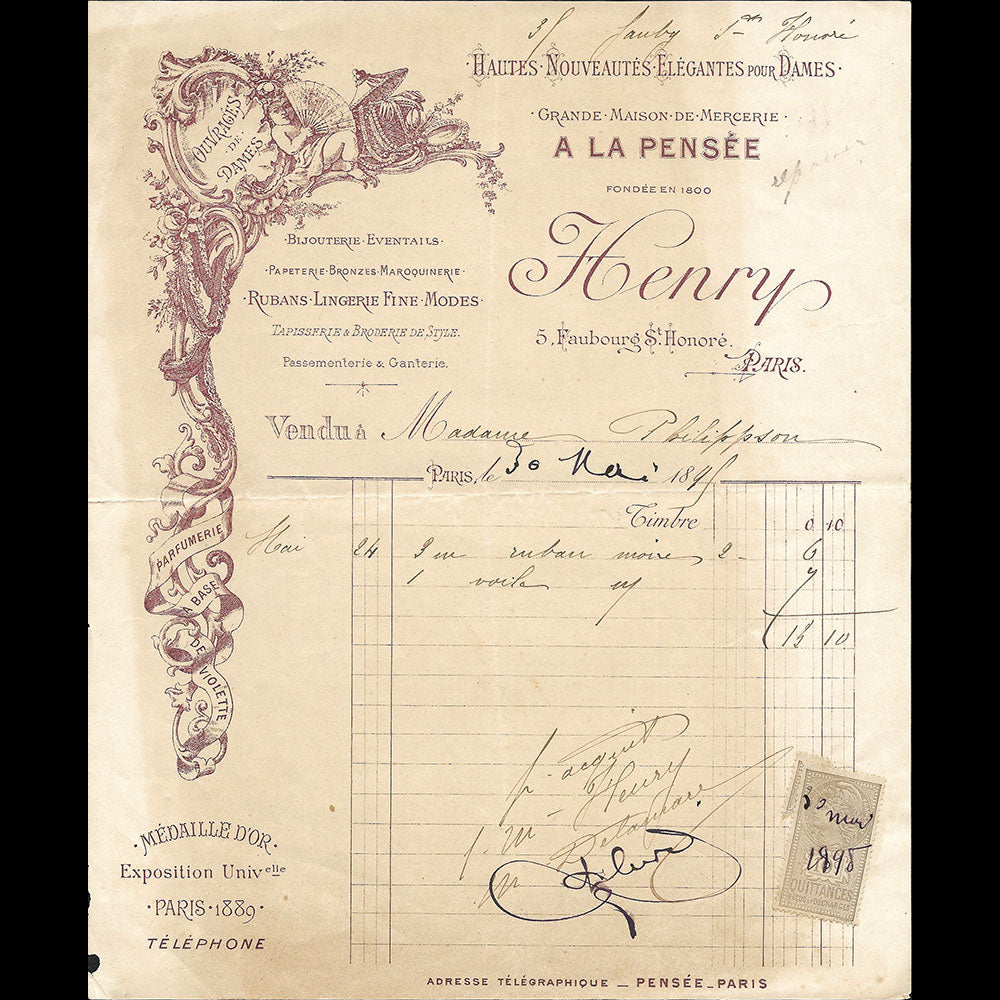 3, Faubg St Honoré
· HAUTES · NOUVEAUTÉS · ELÉGANTES POUR DAMES ·
· GRANDE · MAISON · DE · MERCERIE ·
A LA PENSÉE
FONDÉE EN 1800
Henry
5, Faubourg St. Honoré.
PARIS.
OUVRAGES
DE
DAMES
· BIJOUTERIE · EVENTAILS ·
· PAPETERIE · BRONZES · MAROQUINERIE ·
· RUBANS · LINGERIE FINE · MODES ·
TAPISSERIE & BRODERIE DE STYLE.
Passementerie & Ganterie.
Vendu à Madame Philippson
PARIS, le 30 Mai 1895
Timbre 0 10
Mai 24 3 m ruban moire 2 - 6
1 voile 7
13 10
PARFUMERIE
A BASE
DE
VIOLETTE
p. acquit
Henry
30 mai
1895
QUITTANCES
· MÉDAILLE D'OR ·
Exposition Univelle
· PARIS · 1889 ·
TÉLÉPHONE
ADRESSE TÉLÉGRAPHIQUE _ PENSÉE_PARIS